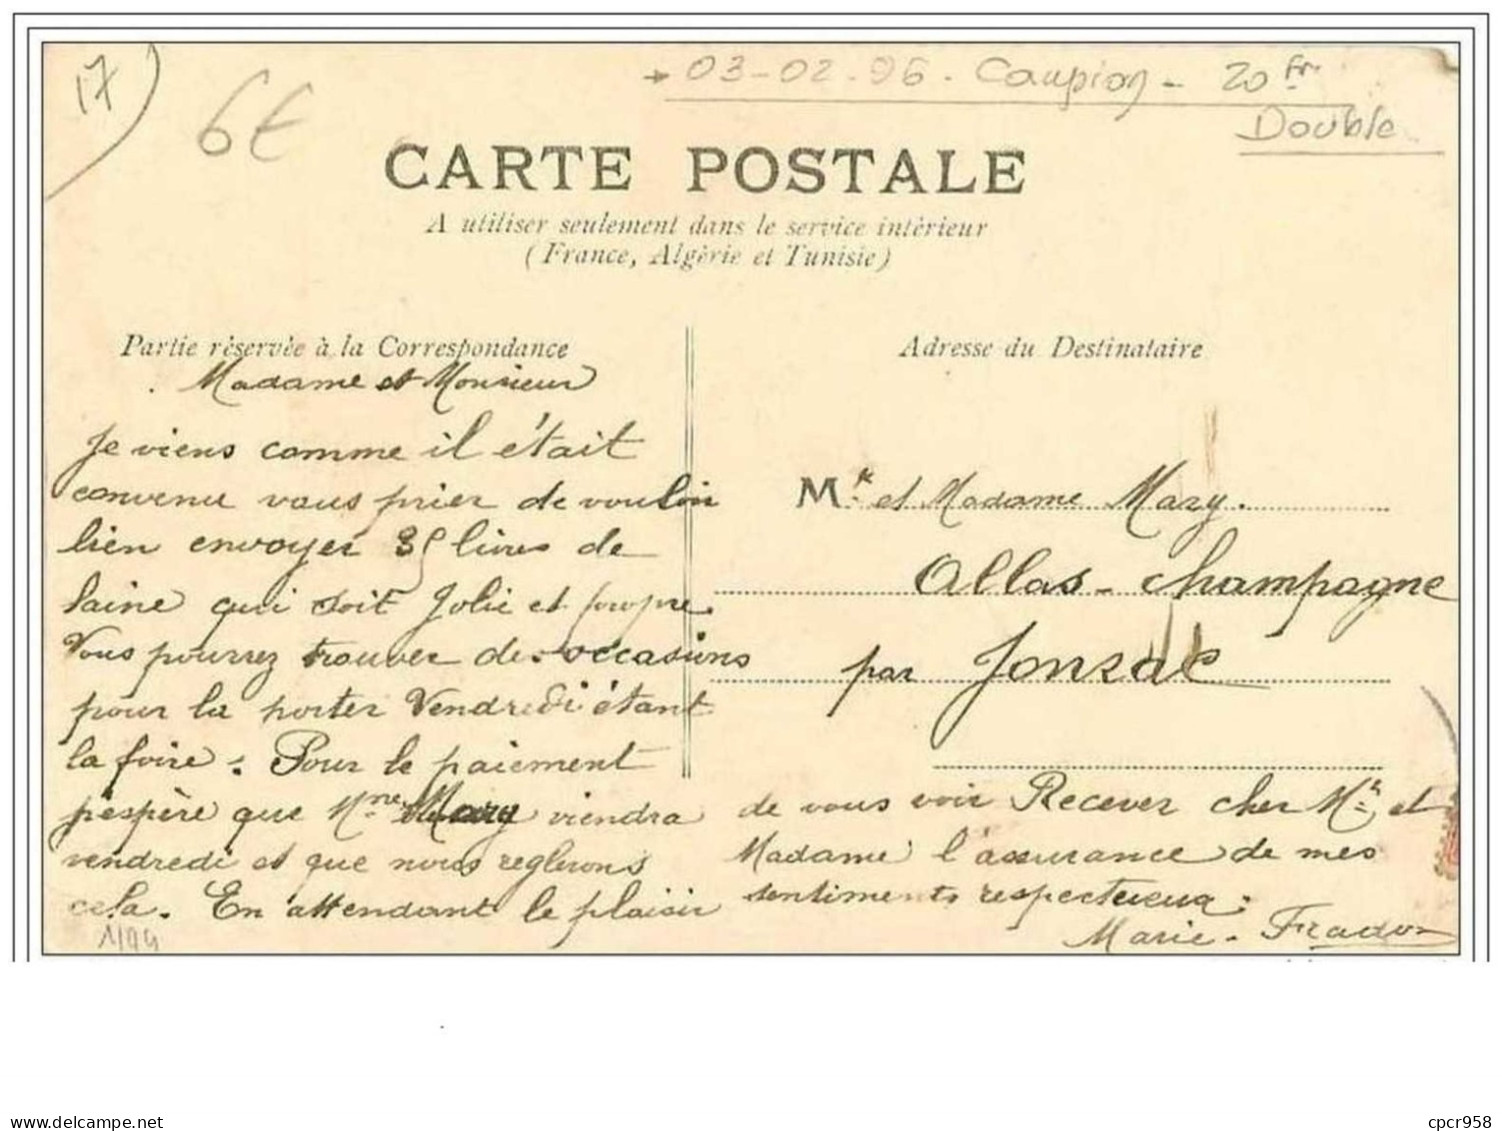 17
6€
03-02-96. Caupion - 20 Fr
Double
CARTE POSTALE
A utiliser seulement dans le service intérieur
(France, Algérie et Tunisie)
Partie réservée à la Correspondance
Madame et Monsieur
Je viens comme il était
convenu vous prier de vouloir
bien envoyer 35 livres de
laine qui soit Jolie et propre.
Vous pourrez trouver des occasions
pour la porter Vendredi étant
la foire. Pour le paiement
j'espère que Mme Mazy viendra
vendredi et que nous reglerons
cela. En attendant le plaisir
Adresse du Destinataire
Mr et Madame Mazy.
Allas-champagne
par Jonzac
de vous voir Recever cher Mr et
Madame l'assurance de mes
sentiments respectueux.
Marie - Fradon
1/94
delcampe.net
cpcr958